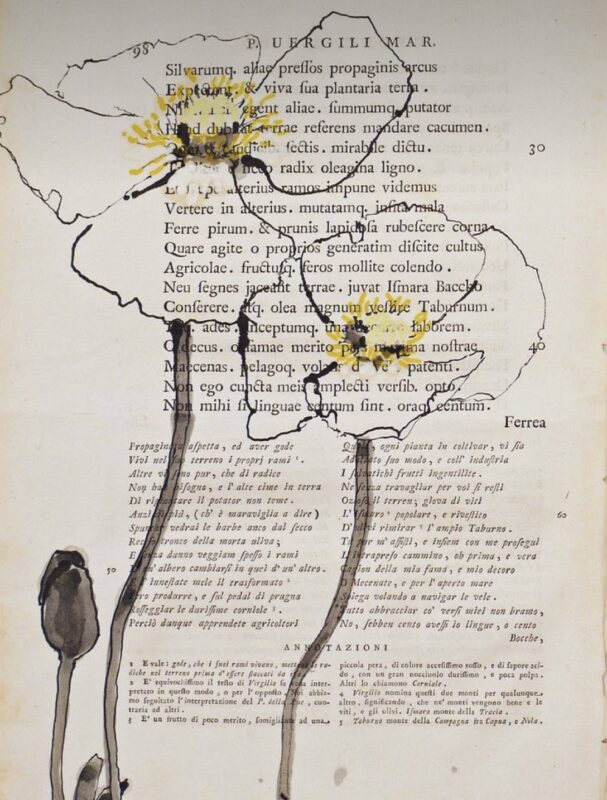 98
P. UERGILI MAR.
Silvarumq. aliae preſſos propaginis arcus
& viva sua plantaria terra.
egent aliae. summumq. putator
dubitat terrae referens mandare cacumen.
ſectis. mirabile dictu. 30
radix oleagina ligno.
alterius ramos impune videmus
Vertere in alterius. mutatamq. inſita mala
Ferre pirum. & prunis lapidoſa rubeſcere corna
Quare agite o proprios generatim diſcite cultus
Agricolae. fructuſq. feros mollite colendo.
Neu ſegnes jaceant terrae. juvat Iſmara Baccho
Conſerere. atq. olea magnum veſtire Taburnum.
ades inceptumq. una labbrem.
decus. o famae merito pars nostrae 40
Maecenas. pelagoq. patenti.
Non ego cuncta meis amplecti verſib. opto.
Non mihi ſi linguae centum ſint. oraq. centum.
Ferrea
Propaggine aſpetta, ed aver gode
Vivi nel ſuo terreno i proprj rami ¹.
Altre pur, che di radice
Non han biſogno, e l'alte cime in terra
Di il potator non teme.
Anzi di più, (ch' è maraviglia a dire)
vedrai le barbe anco dal ſecco
tronco della morta uliva;
ſenza danno veggiam ſpeſſo i rami
50 D'un' albero cambiarſi in quei d' un' altro.
inneſtate mele il trasformato ²
Pero produrre, e ſul pedal di prugna
Roſſeggiar le duriſſime corniole ³.
Perciò dunque apprendete agricoltori
ogni pianta in coltivar, vi ſia
ſuo modo, e coll' induſtria
I ſelvatichi frutti ingentilite.
Ne ſenza travagliar per voi ſi reſti
Ozioſo il terren; giova di viti
popolare, e riveſtito 60
D' ulivi rimirar l' ampio Taburno.
Tu per m' aſſiſti, e inſiem con me proſegui
L'intrapreſo cammino, oh prima, e vera
Cagion della mia fama, e mio decoro
O Mecenate, e per l' aperto mare
Spiega volando a navigar le vele.
Tutto abbracciar co' verſi miei non bramo,
No, ſebben cento aveſſi io lingue, o cento
Bocche,
ANNOTAZIONI
1 E vale: gode, che i ſuoi rami vivano, mettano
diche nel terreno prima d'eſſere ſtaccati
2 E' equivociſſimo il teſto di Virgilio ſe inter-
pretato in queſto modo, o per l' oppoſto. Noi abbia-
mo ſeguitato l' interpretazione del P. della Rue, con-
traria ad altri.
3 E' un frutto di poco merito, ſomigliante ad una
piccola pera, di colore acceſiſſimo roſſo, e di ſapore aci-
do, con un gran nocciuolo duriſſimo, e poca polpa.
Altri lo chiamano Corniale.
4 Virgilio nomina queſti due monti per qualunque
altro, ſignificando, che ne' monti vengono bene e le
viti, e gli ulivi. Iſmaro monte della Tracia.
5 Taburno monte della Campagna fra Capua, e Nola.